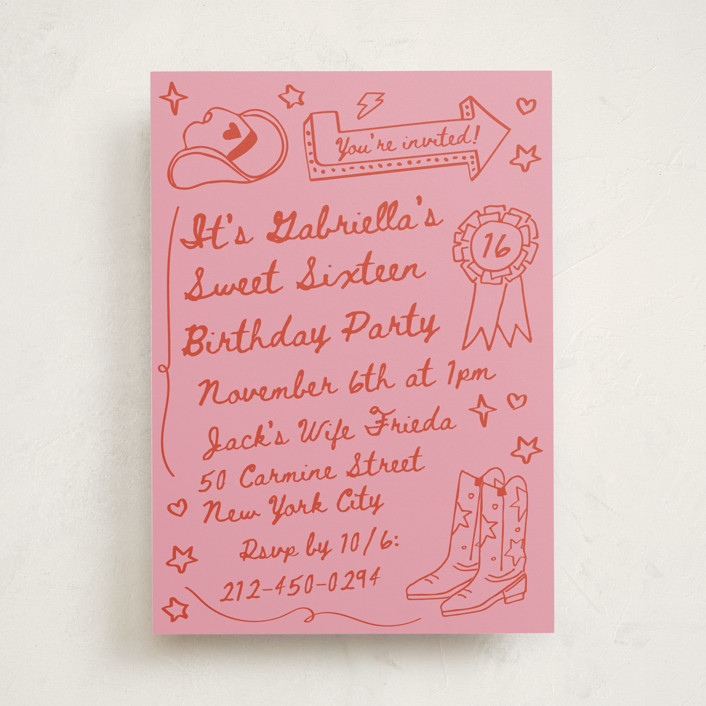 You're invited!
It's Gabriella's
Sweet Sixteen
16
Birthday Party
November 6th at 1pm
Jack's Wife Frieda
50 Carmine Street
New York City
Rsvp by 10/6:
212-450-0294